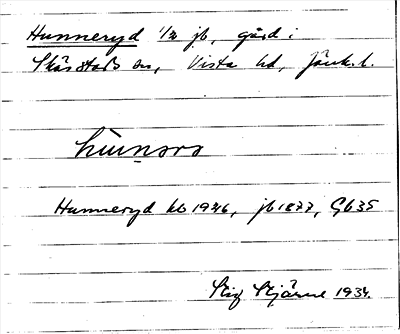 Hunneryd 1/2 jb, gård i
Skärstads sn, Vista hd, Jönk. l.
Hunneryd kb 1946, jb 1877, Gb 35
Stig Stjärne 1934.